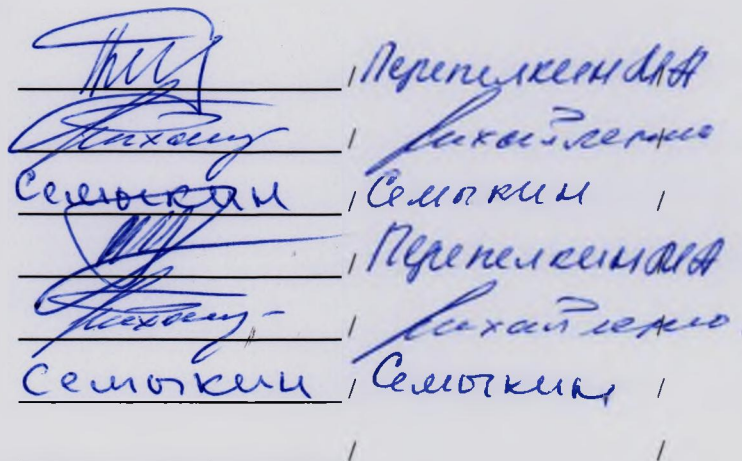 / Перепелкин М А
/ Михайленко /
Семыкин / Семыкин /
/ Перепелкин М А
/ Михайленко /
Семыкин / Семыкин /
/ /